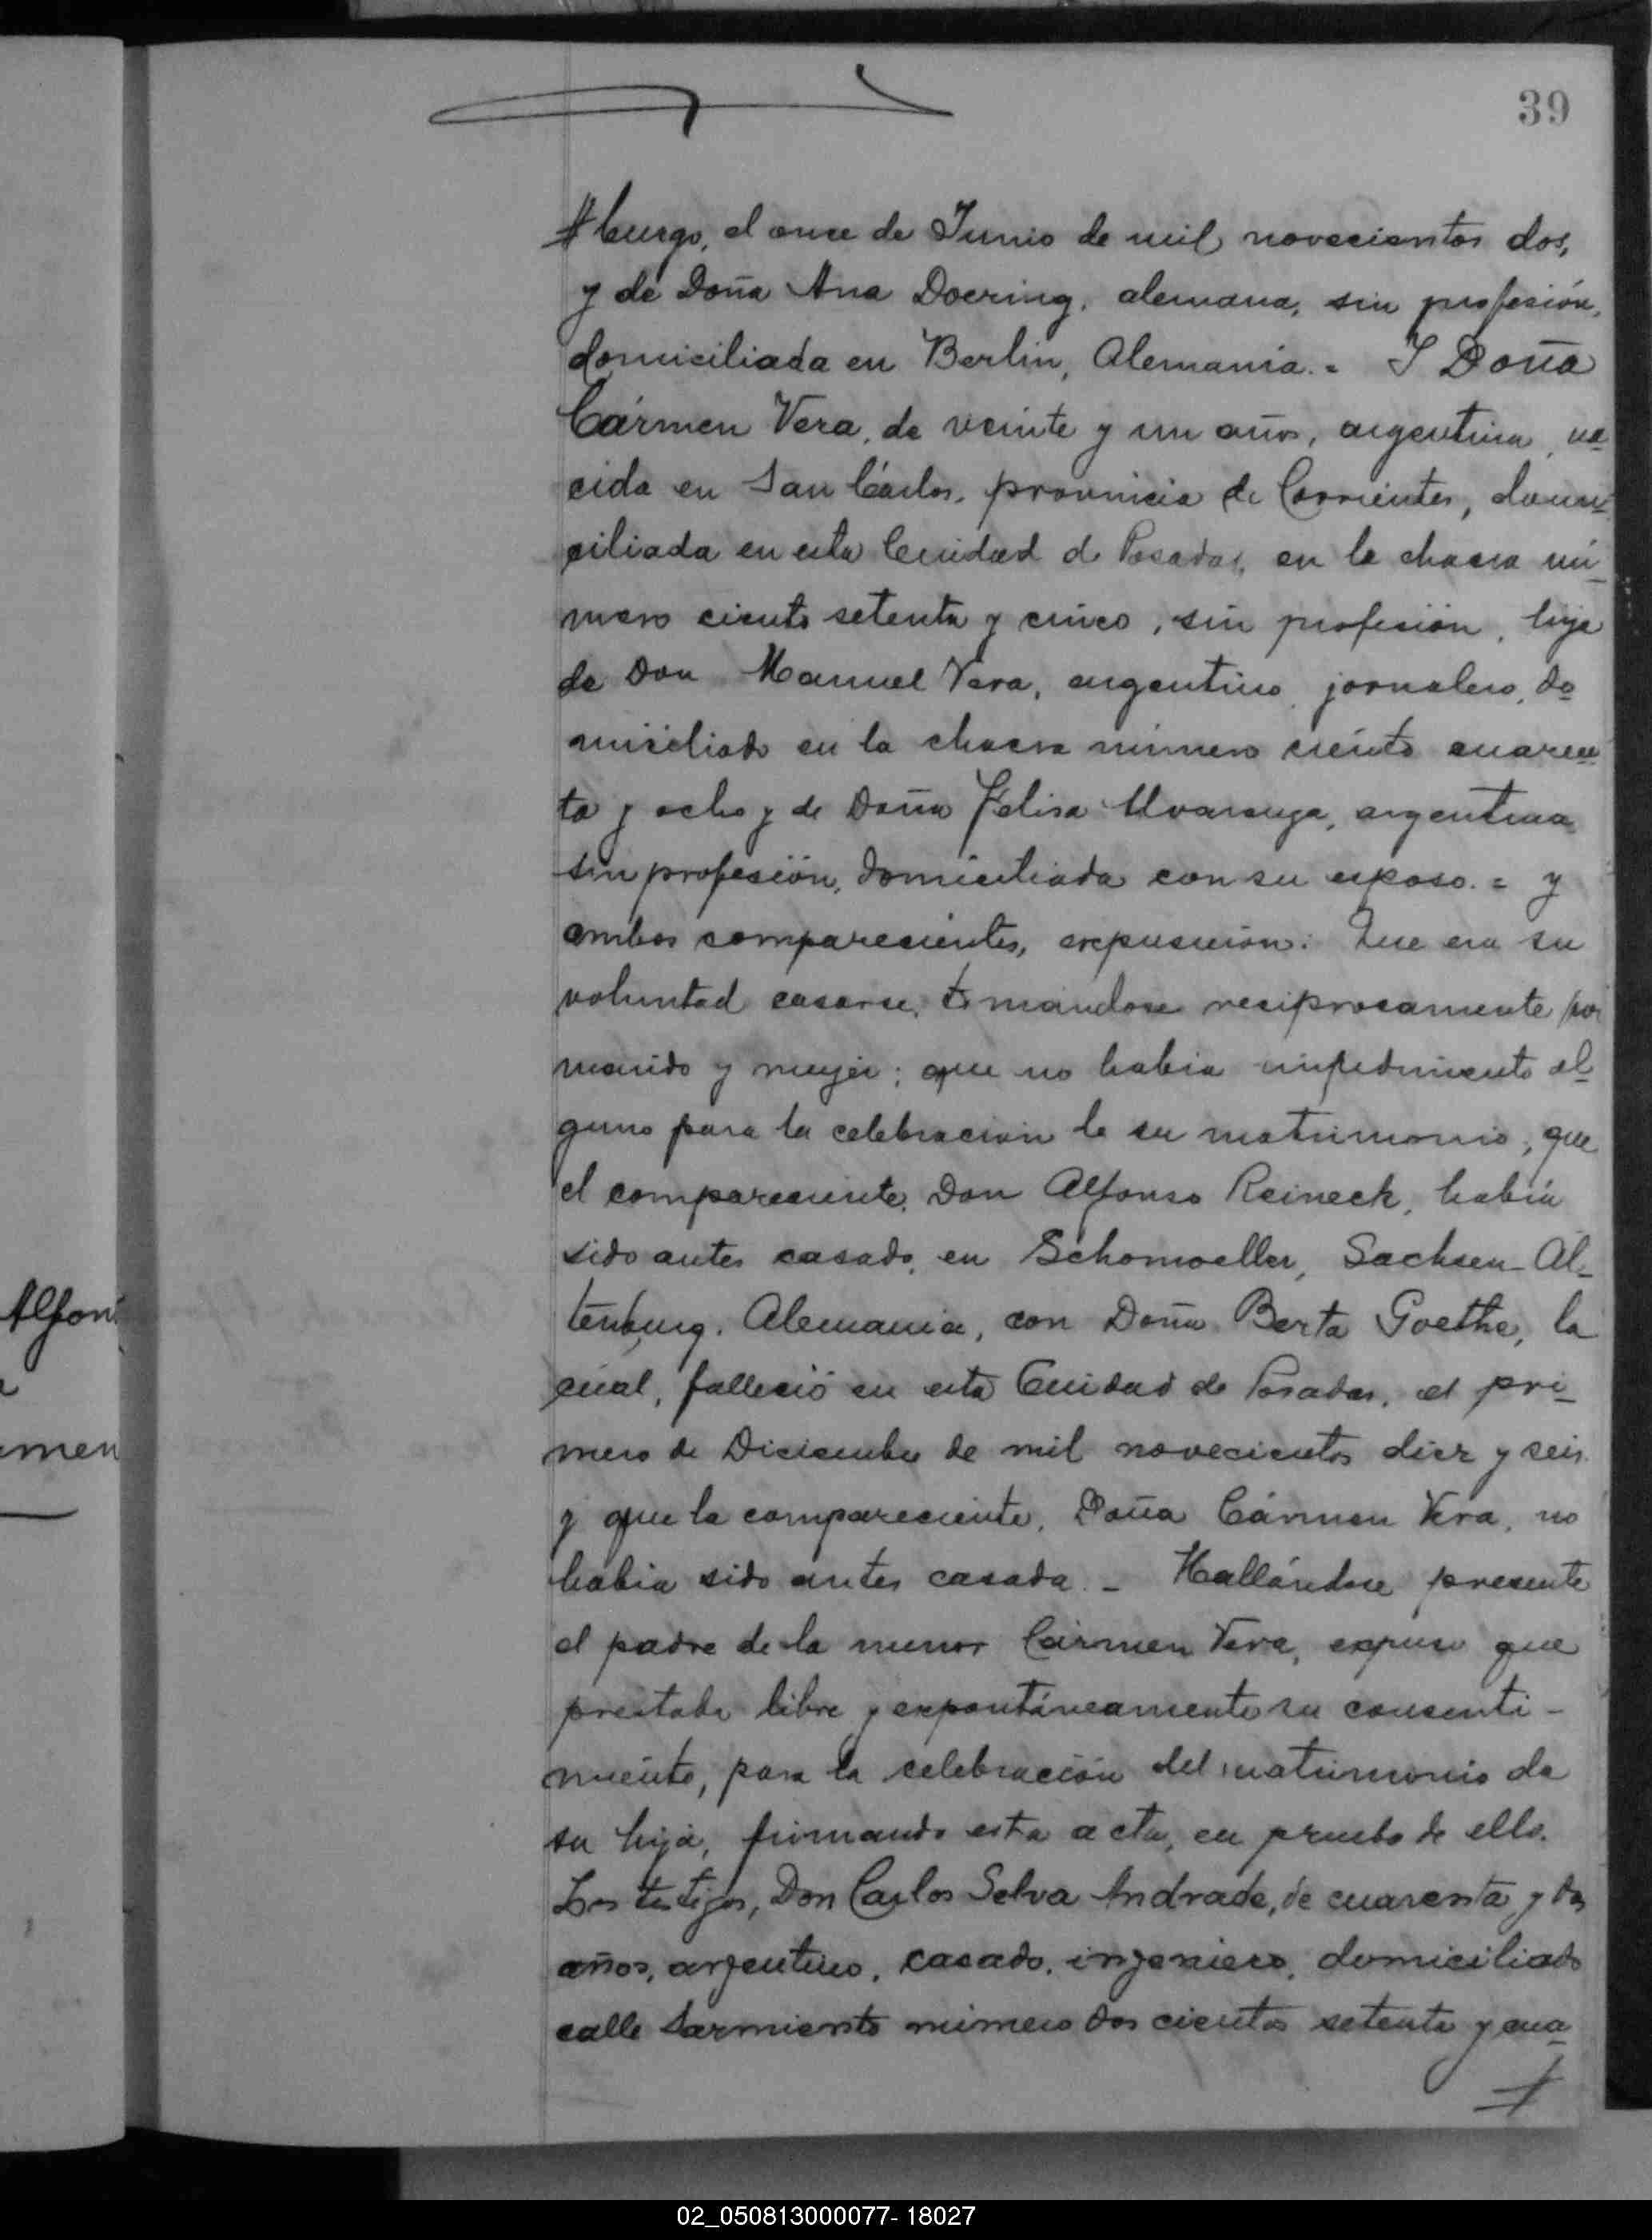 39
#burgo, el once de Junio de mil novecientos dos,
y de Doña Ana Doering, alemana, sin profesión,
domiciliada en Berlin, Alemania.= Y Doña
Cármen Vera, de veinte y un años, argentina, na
cida en San Cárlos, provincia de Corrientes, domi
ciliada en esta Ciudad de Posadas, en la chacra nú
mero ciento setenta y cinco, sin profesión, hija
de Don Manuel Vera, argentino, jornalero, do
miciliado en la chacra número ciento cuaren
ta y ocho y de Doña Felisa Alvarenga, argentina
sin profesión, domiciliada con su esposo.= y
ambos comparecientes, expusieron: Que era su
voluntad casarse, tomándose reciprocamente por
marido y mujer; que no habia impedimento al
guno para la celebracion de su matrimonio; que
el compareciente, Don Alfonso Reineck, habia
sido antes casado, en Schomoeller, Sachsen-Al-
tenburg, Alemania, con Doña Berta Goethe, la
cual, falleció en esta Ciudad de Posadas, el pri-
mero de Diciembre de mil novecientos diez y seis
y que la compareciente, Doña Cármen Vera, no
habia sido antes casada.- Hallándose presente
el padre de la menor Cármen Vera, expuso que
prestaba libre y expontáneamente su consenti-
miento, para la celebración del matrimonio de
su hija, firmando esta acta, en prueba de ello.
Los testigos, Don Carlos Selva Andrade, de cuarenta y dos
años, argentino, casado, ingeniero, domiciliado
calle Sarmiento número dos cientos setenta y cua
#
Alfon
men
02_050813000077- 18027